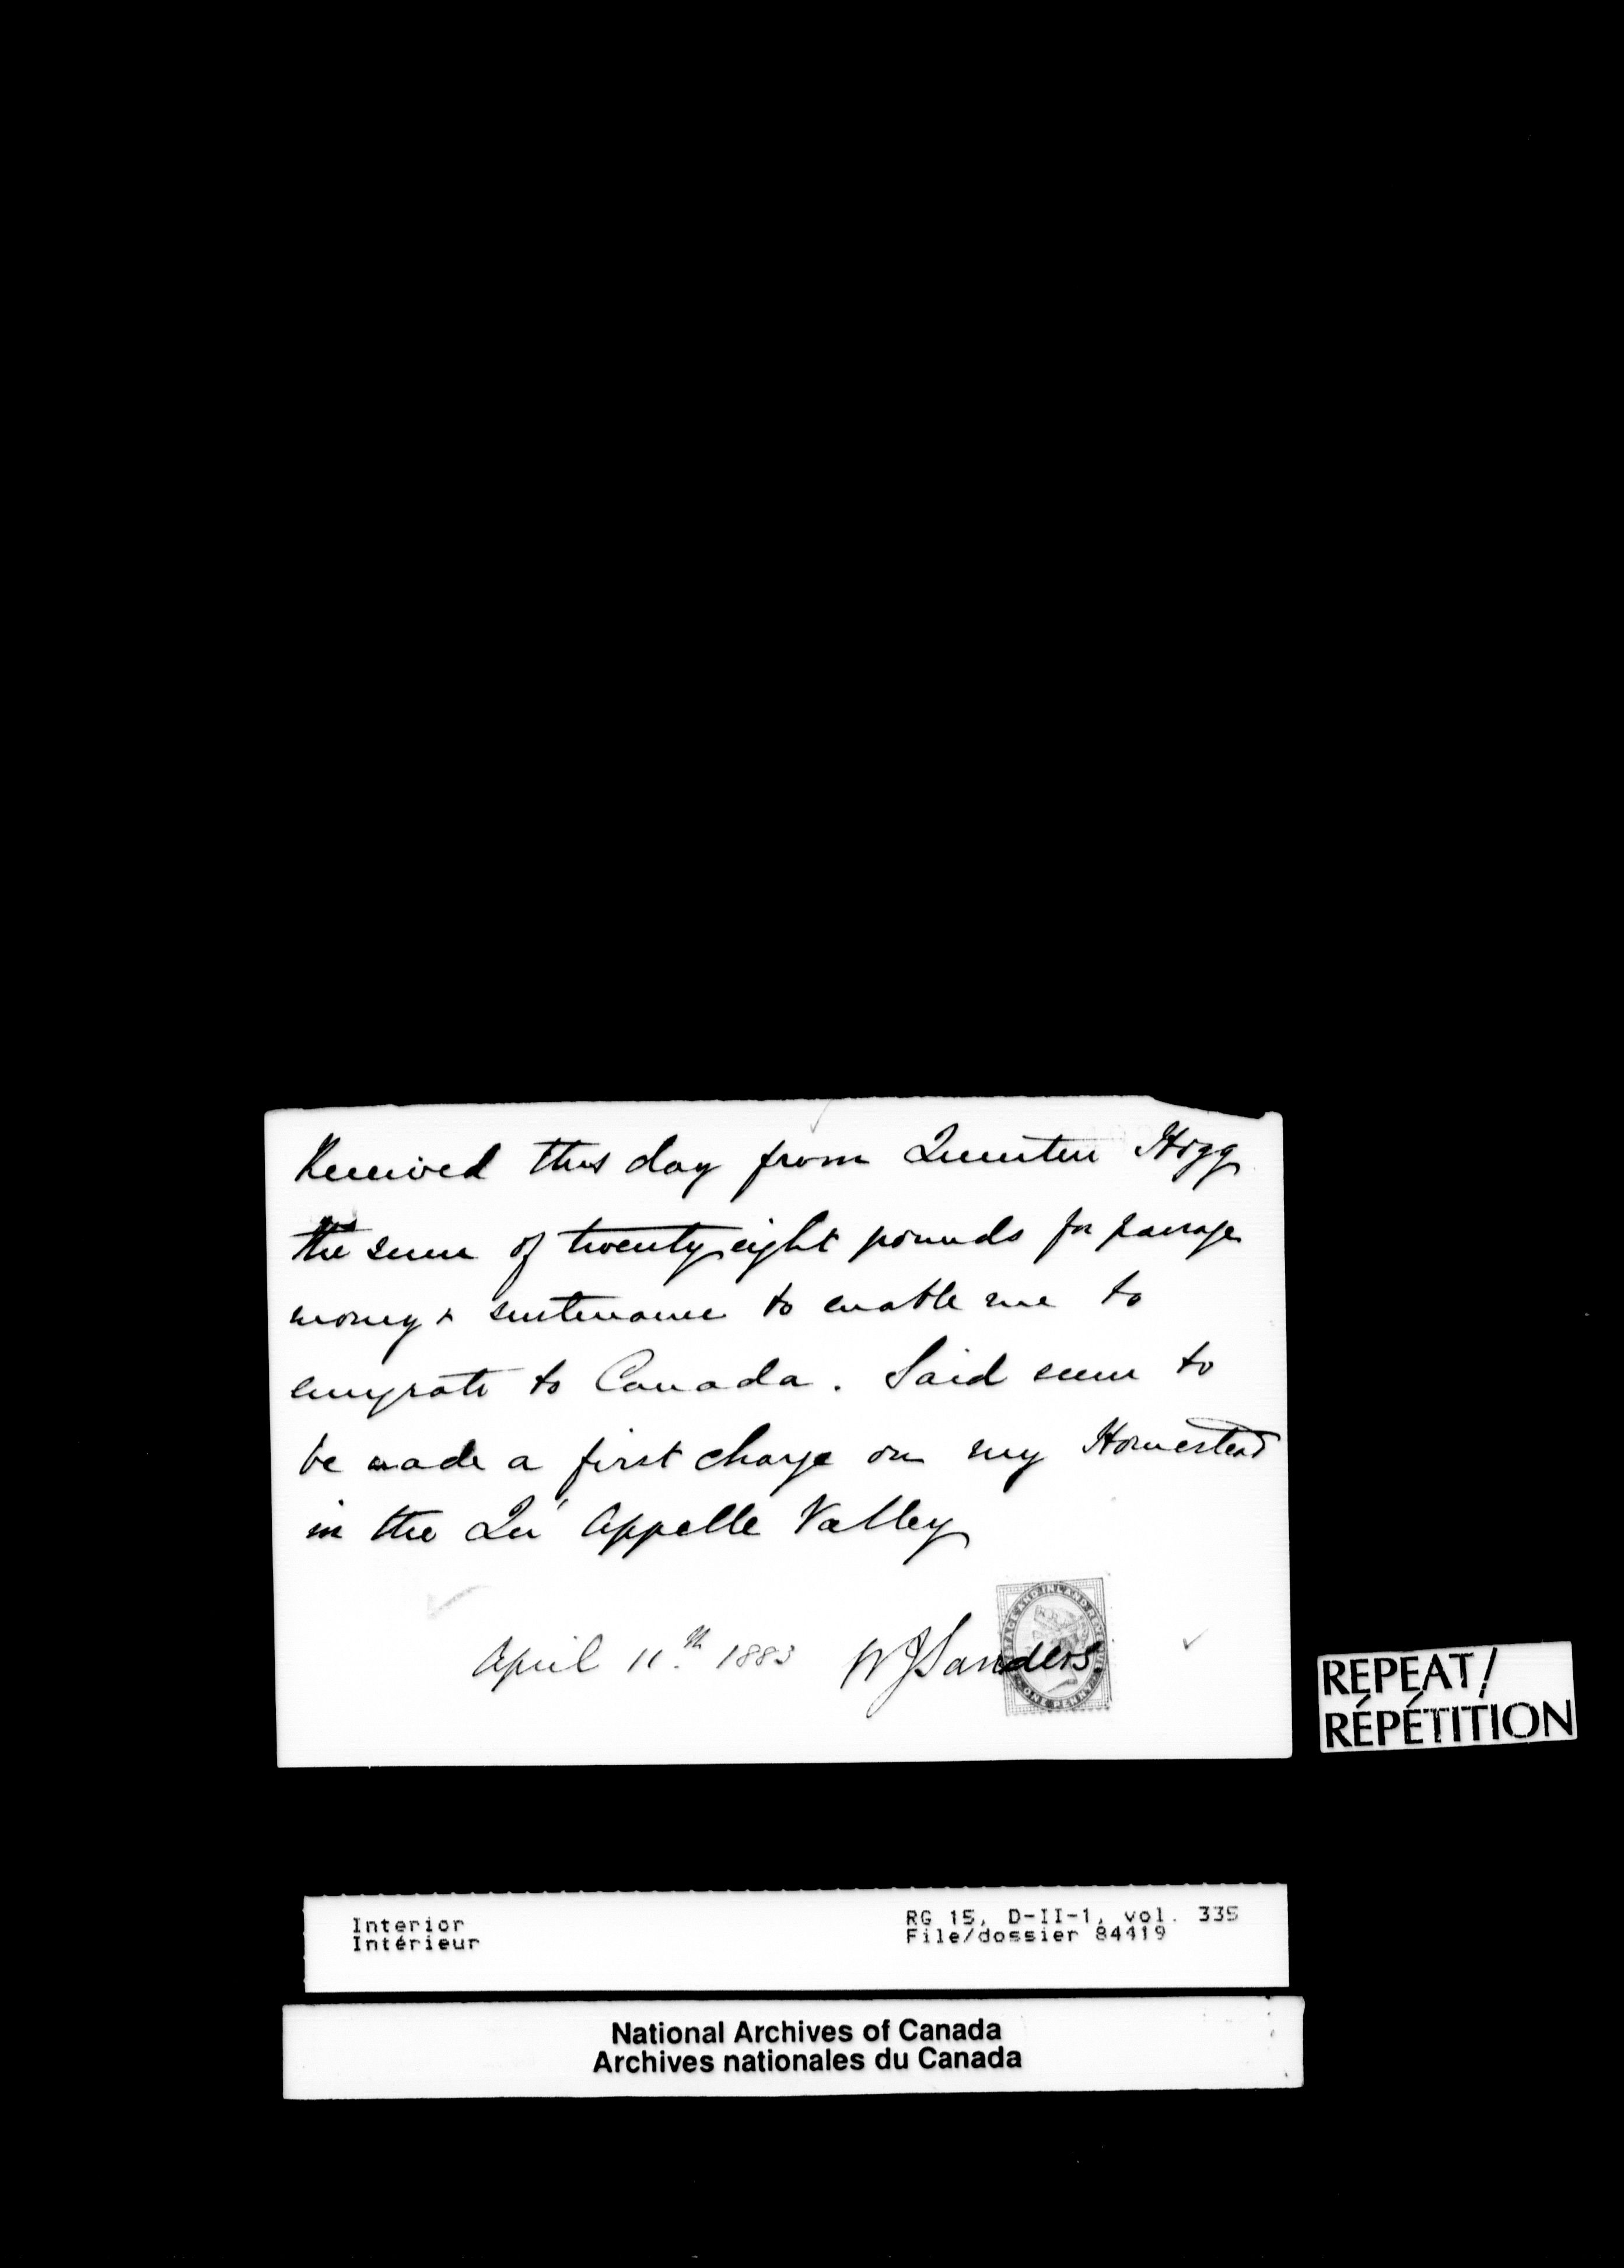 Received this day from Quintin Hogg
the sum of twenty eight pounds for passage
money & sustenance to enable me to
emigrate to Canada. Said sum to
be made a first charge on my Homestead
in the Qu' Appelle Valley
April 11th 1883 WJSanders
POSTAGE AND INLAND REVENUE
ONE PENNY
REPEAT/
RÉPÉTITION
Interior
Intérieur
RG 15, D-II-1, vol. 335
File/dossier 84419
National Archives of Canada
Archives nationales du Canada